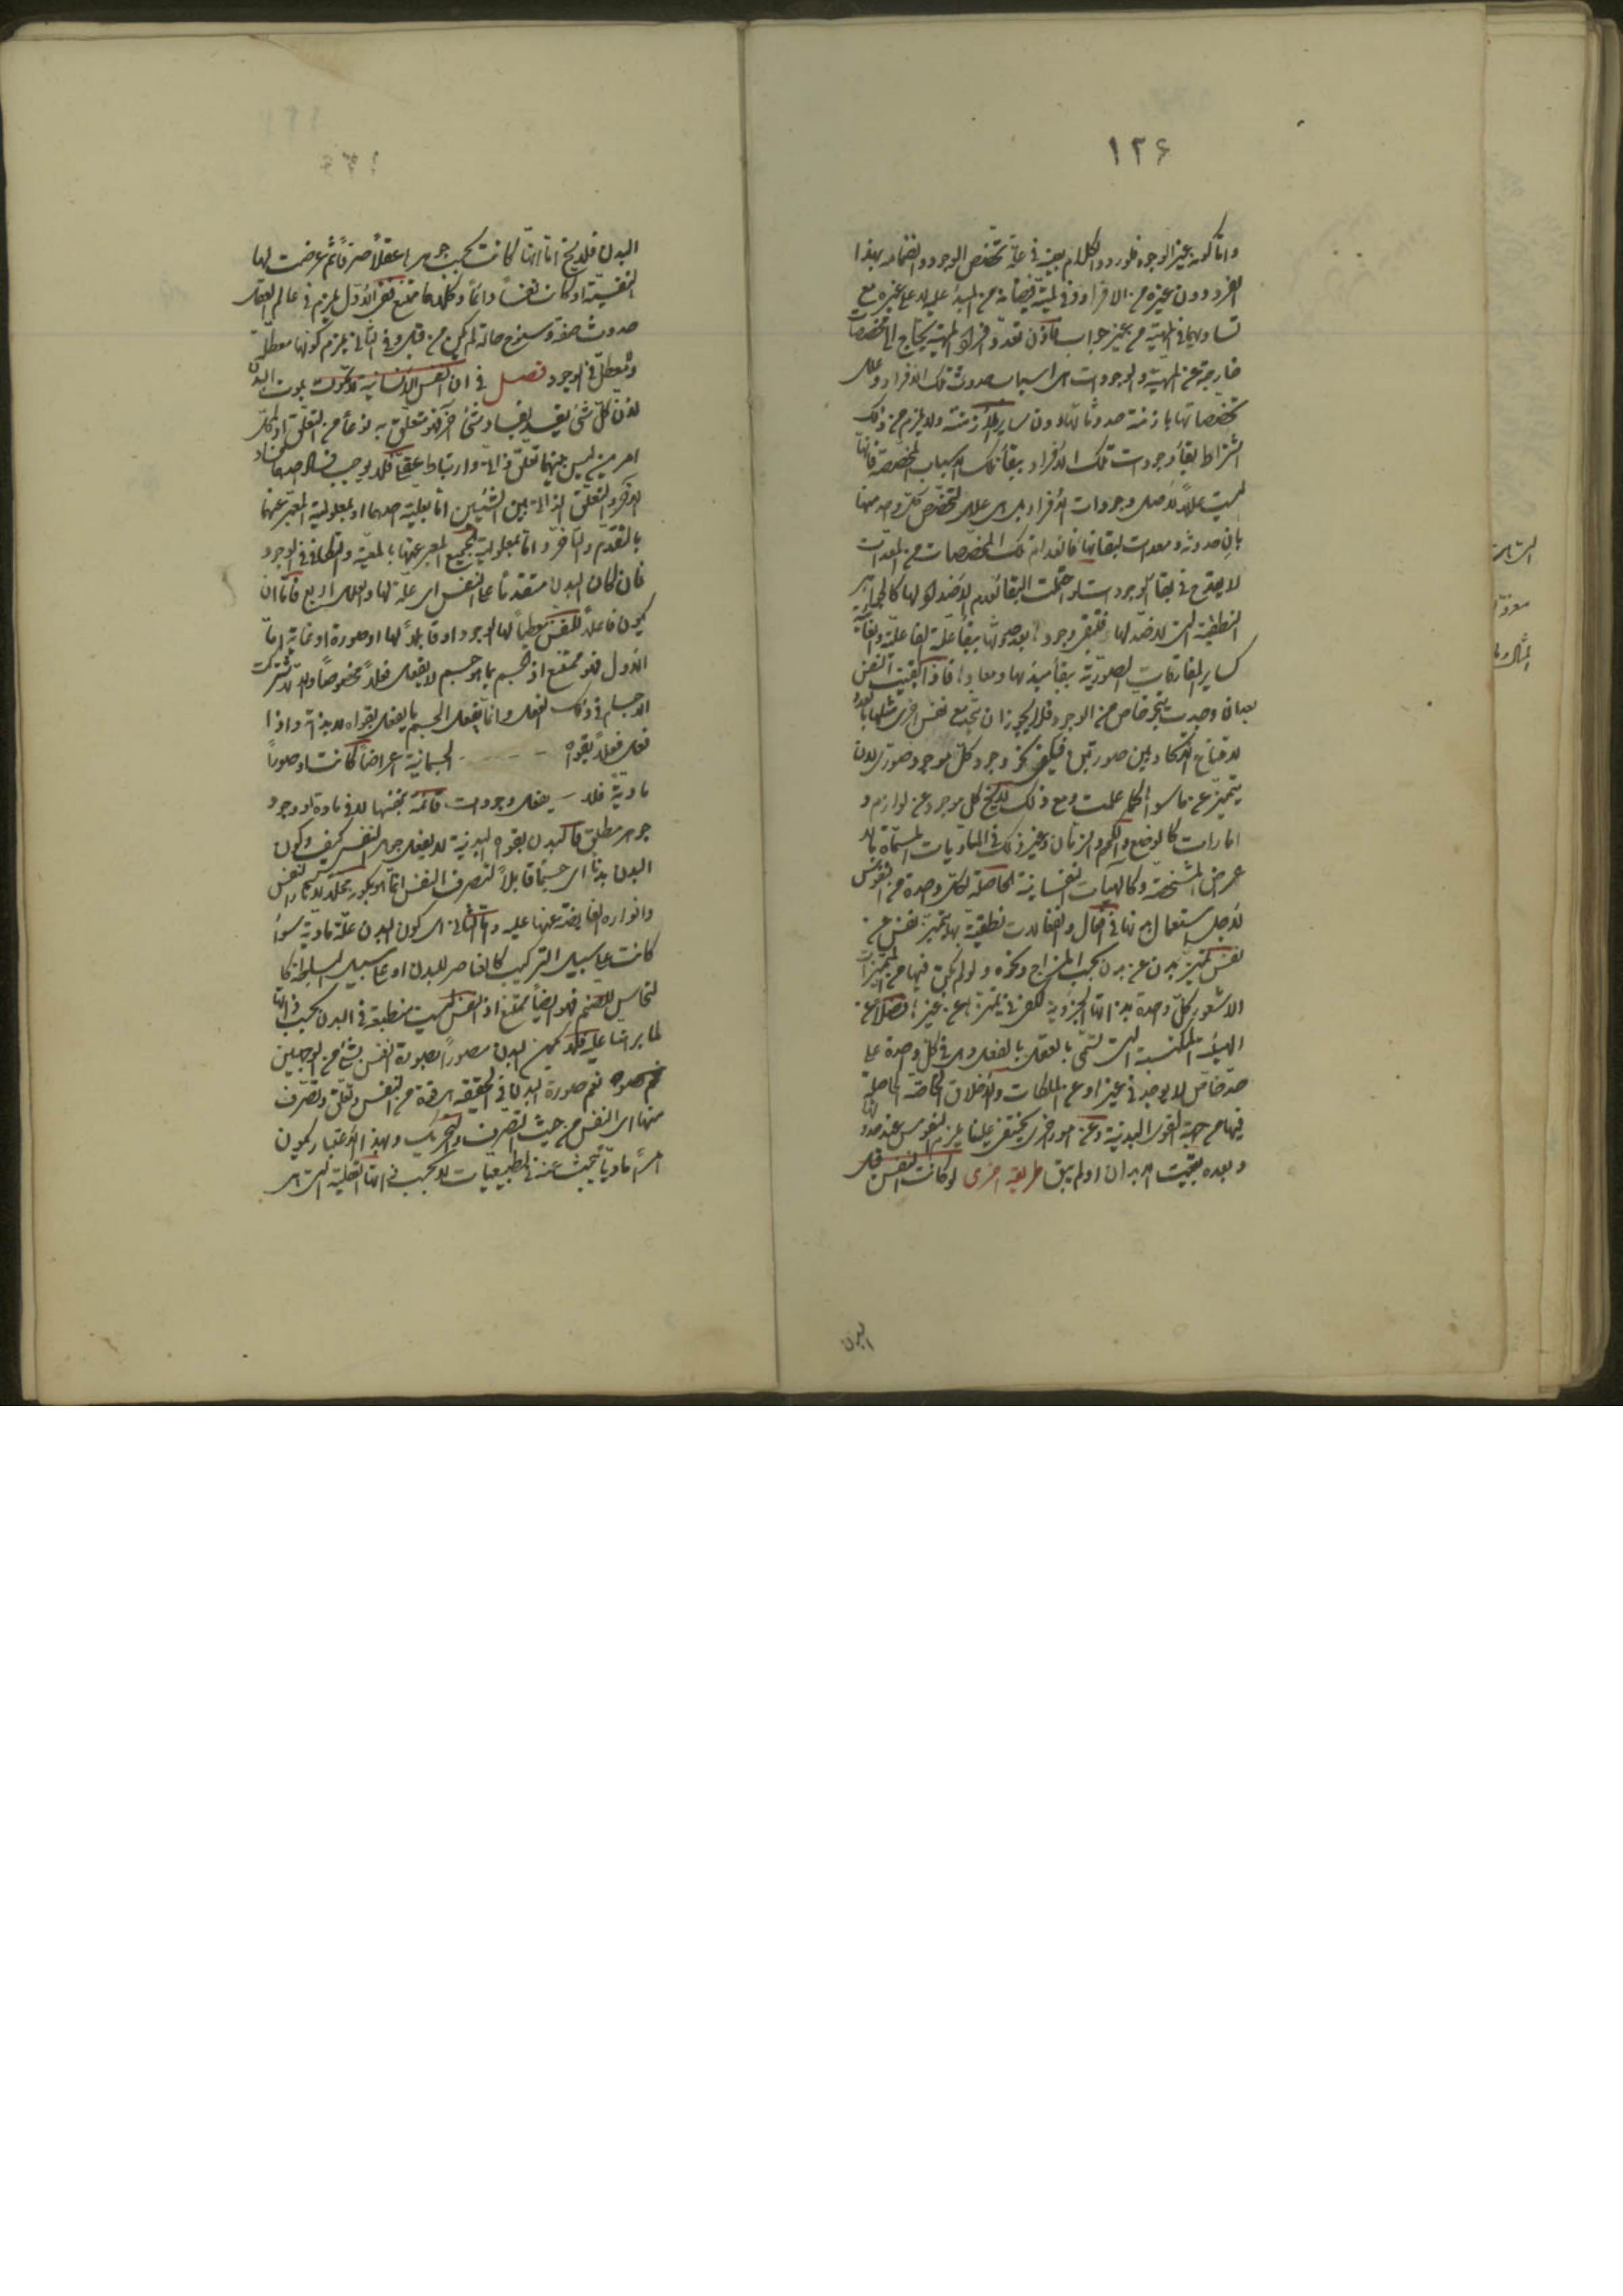 ١٢۶
واما كونه بغير الوجود فلورود الكلام بعينه فى علة تخصص الوجود وانضمامه بهذا
الفرد دون غيره من الافراد وفى لمية فيضانه من المبدأ عليه لا على غيره مع
تساويهما فى المهية من غير جواب فاذن تعدد افراد المهية يحتاج الى مخصصات
خارجة عن المهية والوجودات هى اسباب حدوث تلك الافراد وعلل
تخصصاتها بازمنة حدوثاتها دون ساير الازمنة ولا يلزم من ذلك
اشتراط بقاء وجودات تلك الافراد ببقاء تلك الاسباب المخصصة فانها
ليست عللا لاصل وجودات الافراد بل هى علل لتخصص كل واحد منها
بان حدوثه ومعدات لبقائها فانعدام تلك المخصصات من المعدات
لا يقدح فى بقاء الوجودات لو احتملت البقاء لعدم الاضداد لها كالجواهر
النطقية التى لا ضد لها فتبقى وجودها بعد حدوثها ببقاء علته الفاعلة والغائية
كساير المفارقات الصورية ببقاء مبدئها ومعادها فاذا بقيت النفس
بعد ان وجدت بنحو خاص من الوجود فلا يجوز ان تتحد مع نفس اخرى مثلها بالعدد
لامتناع الاتحاد بين صورتين فيكفى نحو وجود كل موجود صورى لان
يتميز عن ما سواه كما علمت ومع ذلك لا يخلو كل موجود عن لوازم و
امارات كالوضع والكم والزمان وغير ذلك فى الماديات المسماة بالا
عراض المشخصة وكالهيئات النفسانية الحاصلة لكل واحدة من النفوس
لاجل استعمال بدنها فى افعال وانفعالات نطقية بها يتميز نفس عن
نفس كتميز بدن عن بدن بحسب المزاج ونحوه ولو لم يكن فيها من المميزات
الا شعور كل واحدة بذاتها الجزوية لكفى فى تميزها عن غيرها فضلا عن
الهيئة المكتسبة التى تسمى بالعقل بالفعل وهى فى كل واحدة على
حد خاص لا يوجد فى غيرها وعن الملكات والاخلاق الخاصة الحاصلة
فيها من جهة القوى البدنية وعن امور اخرى يختفى علينا يلزم النفوس عند حدوثها
وبعده بقيت الابدان او لم يبق طريقة اخرى لو كانت النفس قبل
البدن
البدن فلا يخ اما انها كانت بحسب جوهرها عقلا صرفا ثم عرضت لها
النفسية او كانت نفسا دائما وكلاهما ممتنع ففى الاول يلزم فى عالم العقل
حدوث صفة وسنوح حالة لم يكن من قبل وفى الثانى يلزم كونها معطلة
ولا معطل فى الوجود فصل فى ان النفس الانسانية لا تموت بموت البدن
لان كل شئ يفسد بفساد شئ اخر فهو متعلق به نوعا من التعلق اذ كل
امرين ليس بينهما تعلق ذاتى وارتباط عقلى فلا يوجب فساد احدهما فساد
الاخر والتعلق الذاتى بين الشيئين اما بعلية احدهما او بمعلولية المعبر عنهما
بالتقدم والتأخر واما بمعلولية الجميع المعبر عنها بالمعية والتكافى فى الوجود
فان كان البدن متقدما على النفس اى علة لها والعلل اربع فاما ان
يكون فاعلا للنفس معطيا لها الوجود او قابلا لها او صورة او غاية اما
الاول فهو ممتنع اذ الجسم بما هو جسم لا يفعل فعلا مخصوصا والا لاشتركت
الاجسام فى ذلك الفعل وانما يفعل الجسم ما يفعل بقواه لا بذاته واذا
فعل فعلا بقواه الجسمانية اعراضا كانت او صورا
مادية فلا يفعل وجودات قائمة بنفسها لا فى مادة او وجود
جوهر مطلق فالبدن بقوته البدنية لا يفعل جوهر النفس كيف وكون
البدن بدنا اى جسما قابلا لتصرف النفس انما هو
وانواره الفايضة عنها عليه واما الثانى اى كون البدن علة مادية سواء
كانت على سبيل التركيب كالعناصر للبدن او على سبيل البساطة كا
لنحاس للصنم فهو ايضا ممتنع اذ النفس ليست منطبعة فى البدن بحسب ذاتها
لما برهنا عليه فلا يكون البدن مصورا بصورة النفس بشئ من الوجهين
نعم صورة البدن فى الحقيقة من النفس وتعلق وتصرف
منها اى النفس من حيث التصرف والتحريك وبهذا الاعتبار يكون
امرا ماديا يبحث عنه فى الطبيعيات لا بحسب ذاتها العقلية التى هى